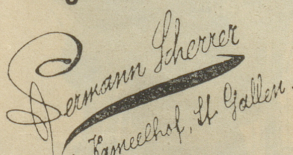 Hermann Scherrer
z. Kameelhof, St. Gallen.